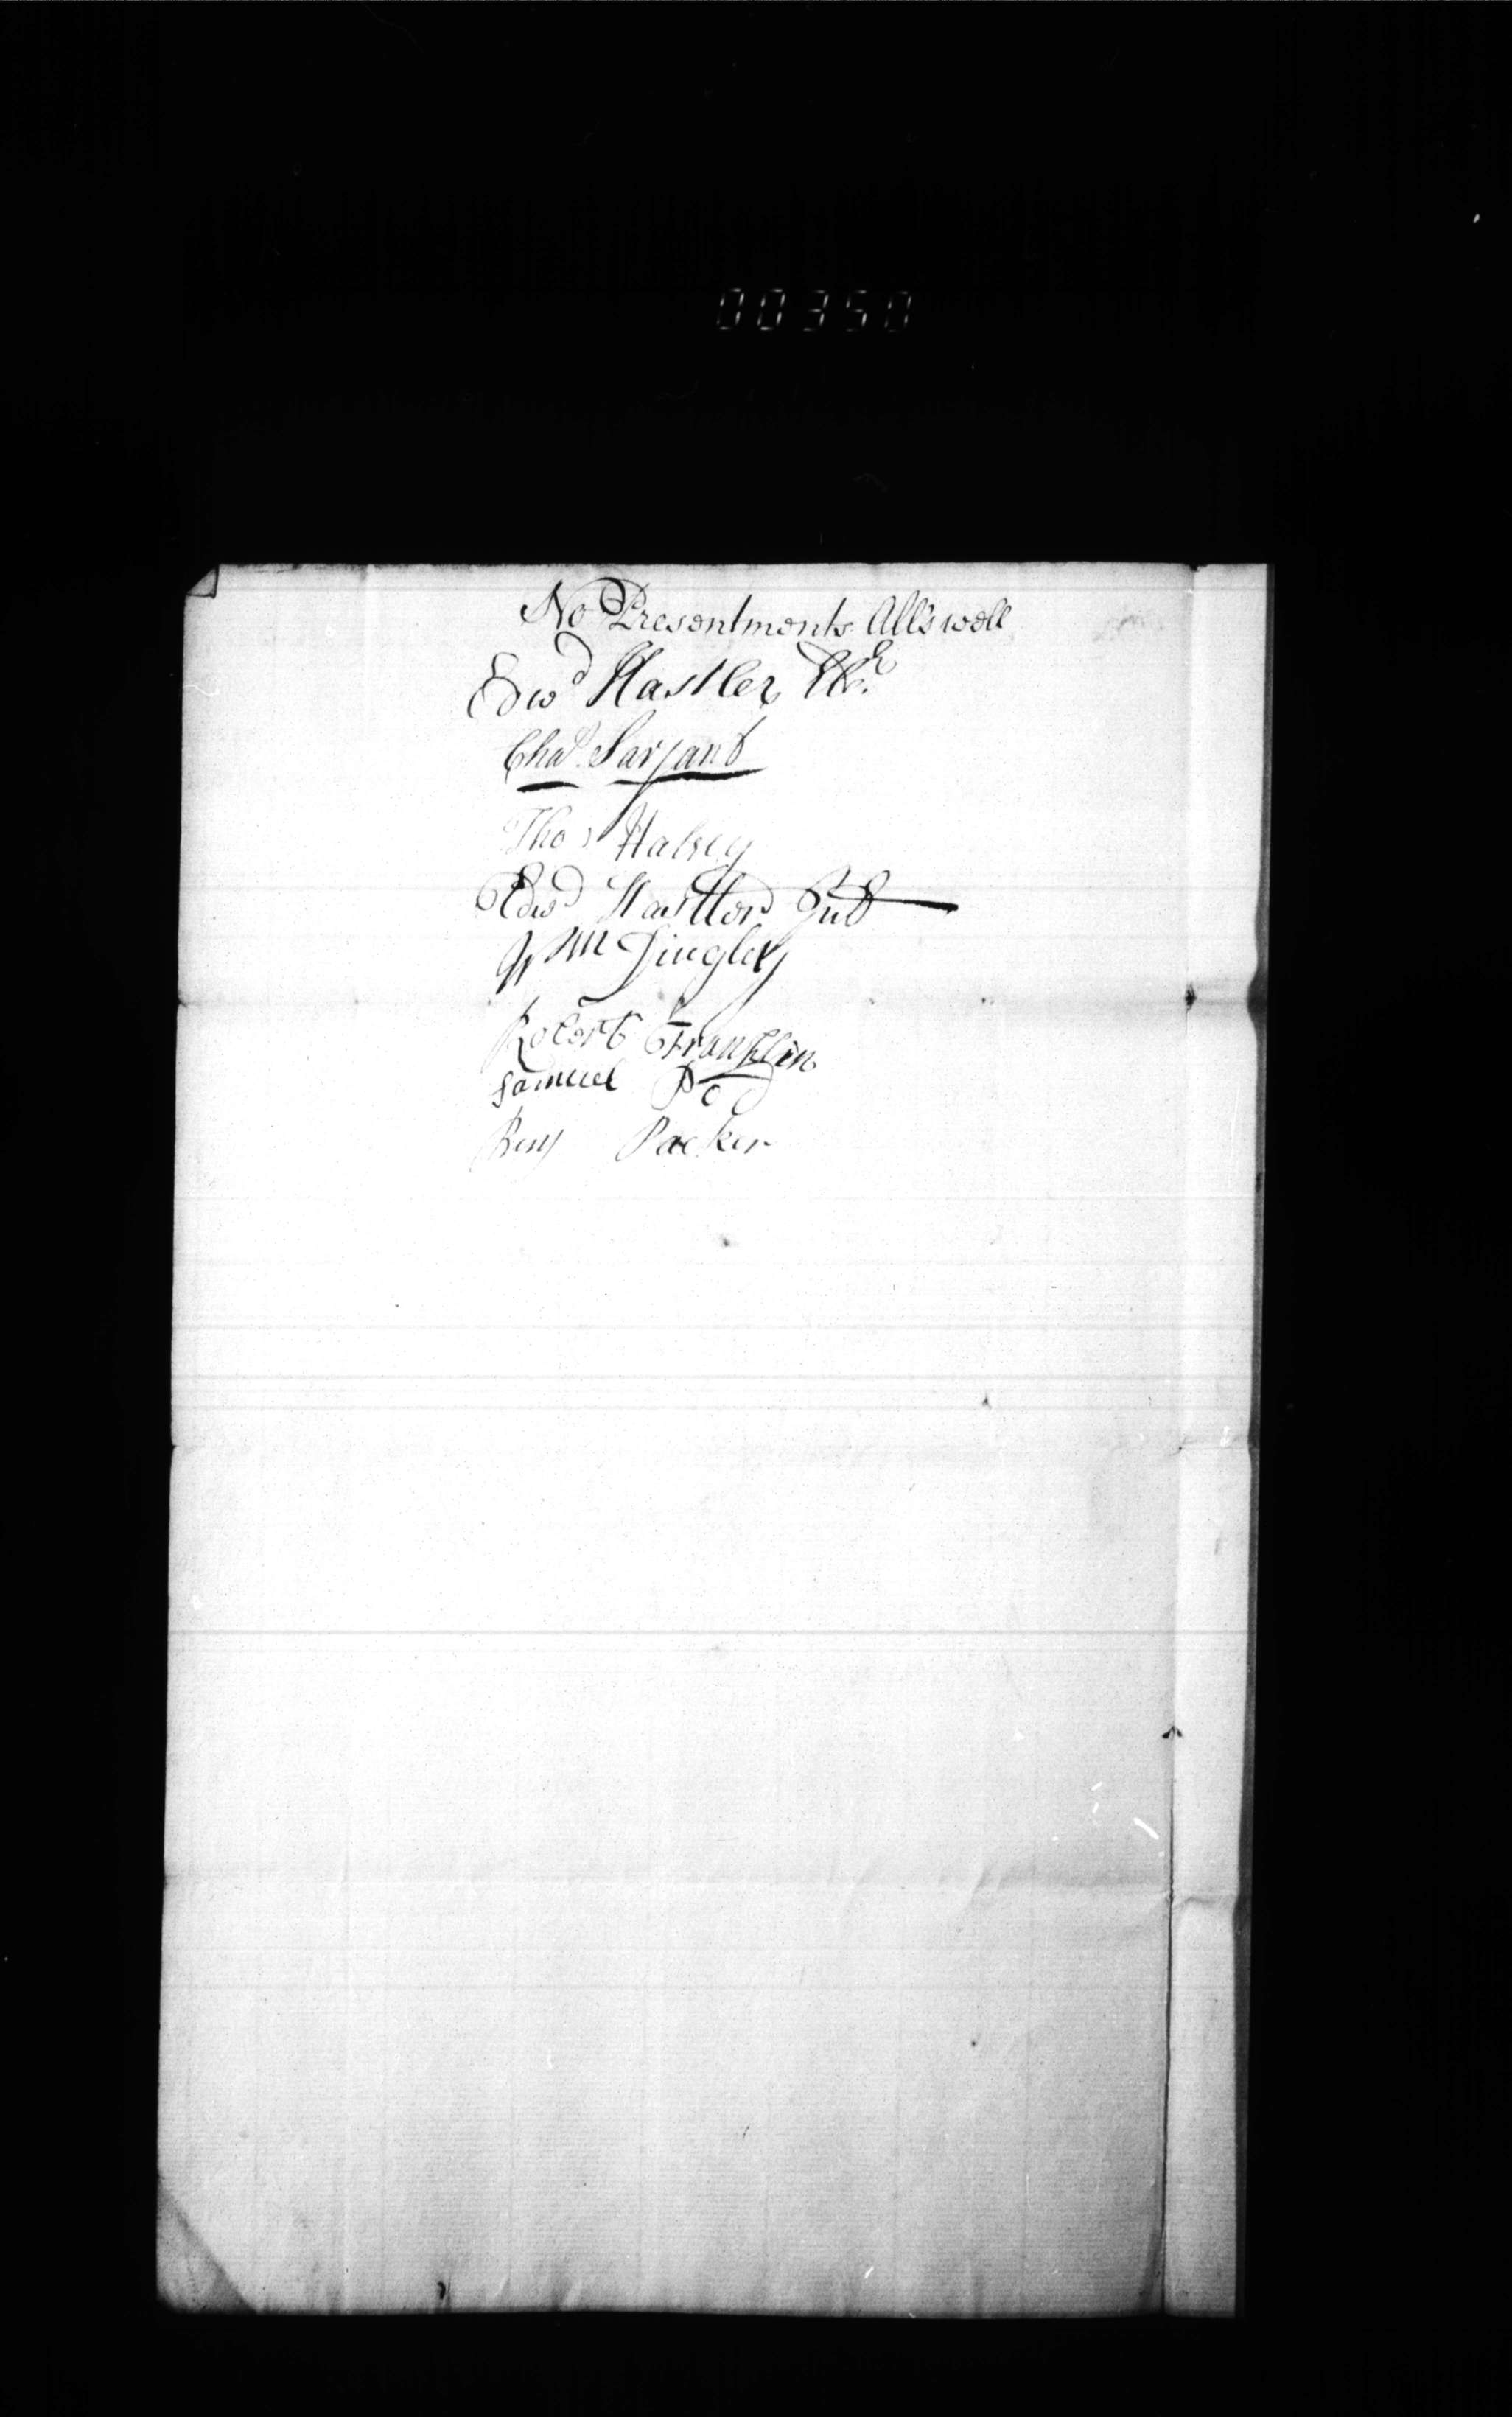 00350
No Presentments All's well
Edwd Hastler
Chas. Sarjant
Thos Halsey
Edwd Hastler Jud
Wm Dingley
Robert Franklin
Samuel
Benj Packer